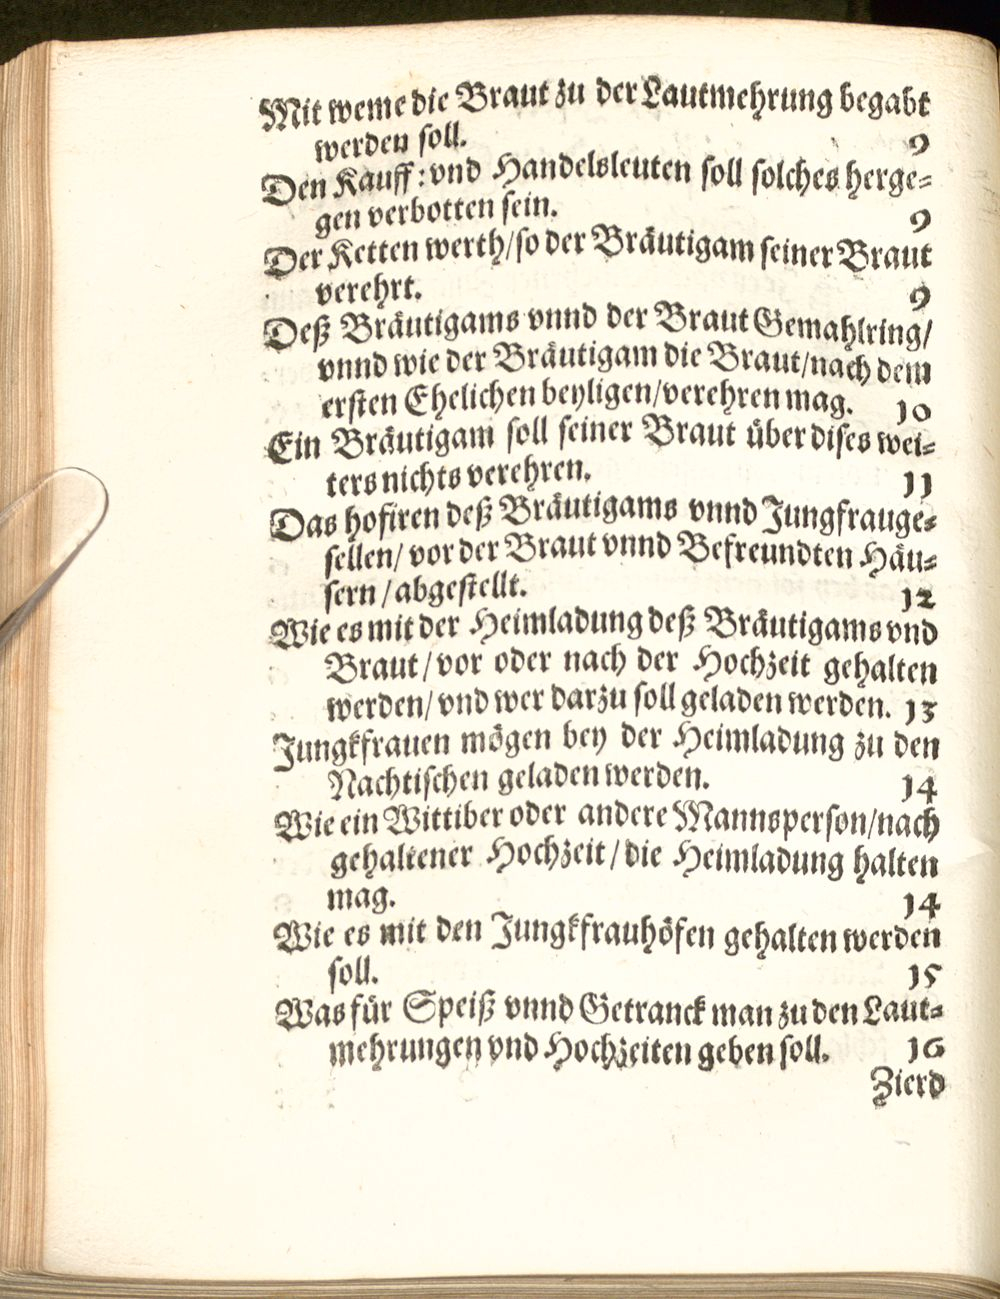 Mit weme die Braut zu der Lautmehrung begabt
werden soll. 9
Den Kauff: vnd Handelsleuten soll solches herge-
gen verbotten sein. 9
Der Ketten werth/ so der Bräutigam seiner Braut
verehrt. 9
Deß Bräutigams vnnd der Braut Gemahlring/
vnnd wie der Bräutigam die Braut/ nach dem
ersten Ehelichen beyligen/ verehren mag. 10
Ein Bräutigam soll seiner Braut über dises wei-
ters nichts verehren. 11
Das hofiren deß Bräutigams vnnd Jungfrauge-
sellen/ vor der Braut vnnd Befreundten Häu-
sern / abgestellt. 12
Wie es mit der Heimladung deß Bräutigams vnd
Braut / vor oder nach der Hochzeit gehalten
werden/ vnd wer darzu soll geladen werden. 13
Jungkfrauen mögen bey der Heimladung zu den
Nachtischen geladen werden. 14
Wie ein Wittiber oder andere Mannsperson/ nach
gehaltener Hochzeit / die Heimladung halten
mag. 14
Wie es mit den Jungkfrauhöfen gehalten werden
soll. 15
Was für Speiß vnnd Getranck man zu den Laut-
mehrungen vnd Hochzeiten geben soll. 16
Zierd